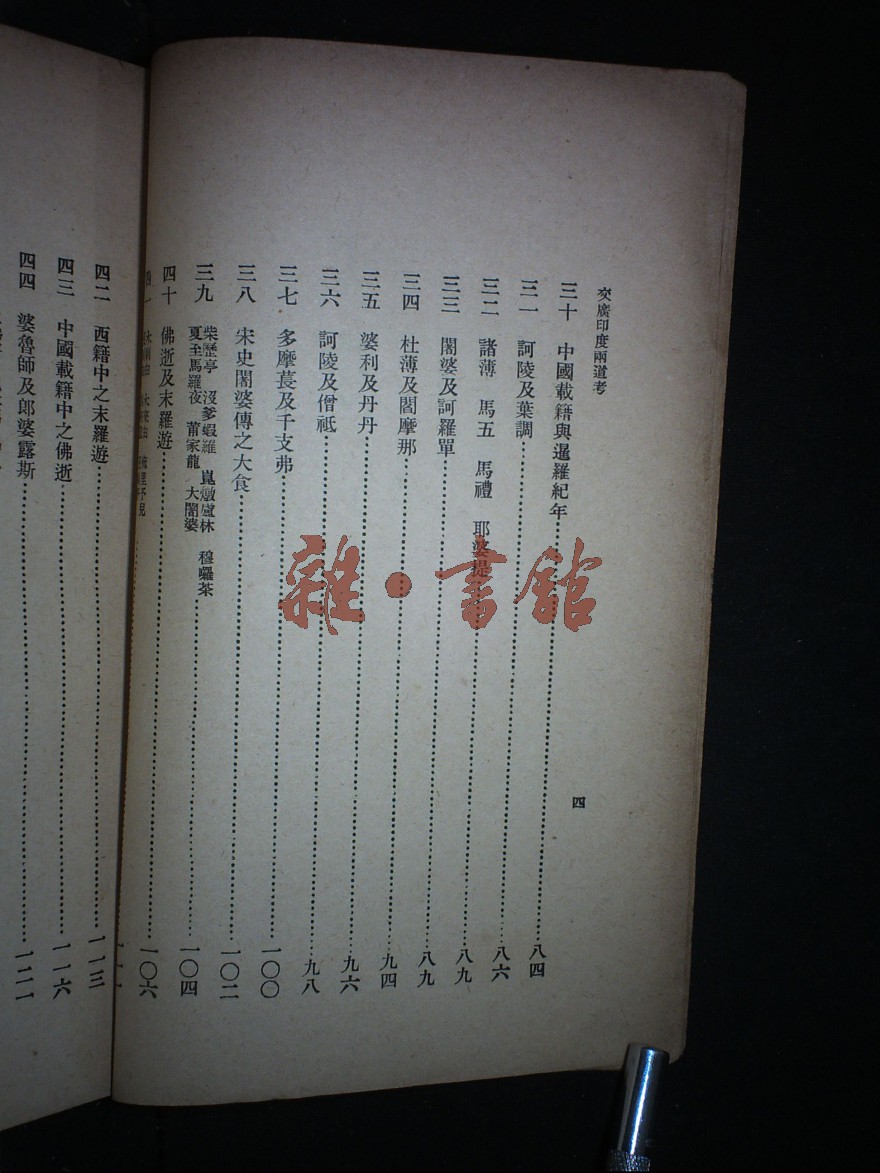 交廣印度兩道考
四
三十 中國載籍與暹羅紀年 八四
三一 訶陵及葉調 八六
三二 諸薄 馬五 馬禮 耶婆提 八九
三三 闍婆及訶羅單 八九
三四 杜薄及闍摩那 九四
三五 婆利及丹丹 九六
三六 訶陵及僧祇 九八
三七 多摩萇及千支弗 一〇〇
三八 宋史闍婆傳之大食 一〇二
三九 柴歷亭 沒爹蝦羅 崑燉盧林 穆囉茶
夏至馬羅夜 莆家龍 大闍婆 一〇四
四十 佛逝及末羅遊 一〇六
四一
四二 西籍中之末羅遊 一一三
四三 中國載籍中之佛逝 一一六
四四 婆魯師及郎婆露斯 一二一
雜·書館